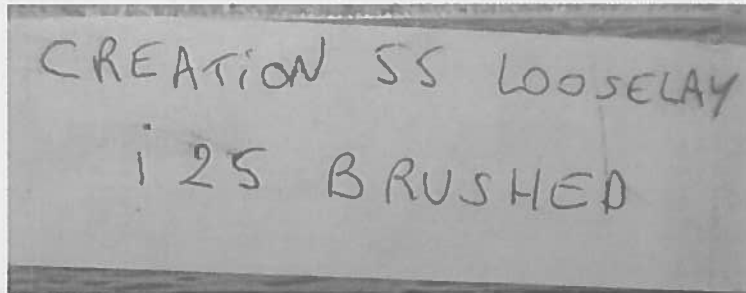 CREATiON 55 LOOSELAY
i 25 BRUSHED